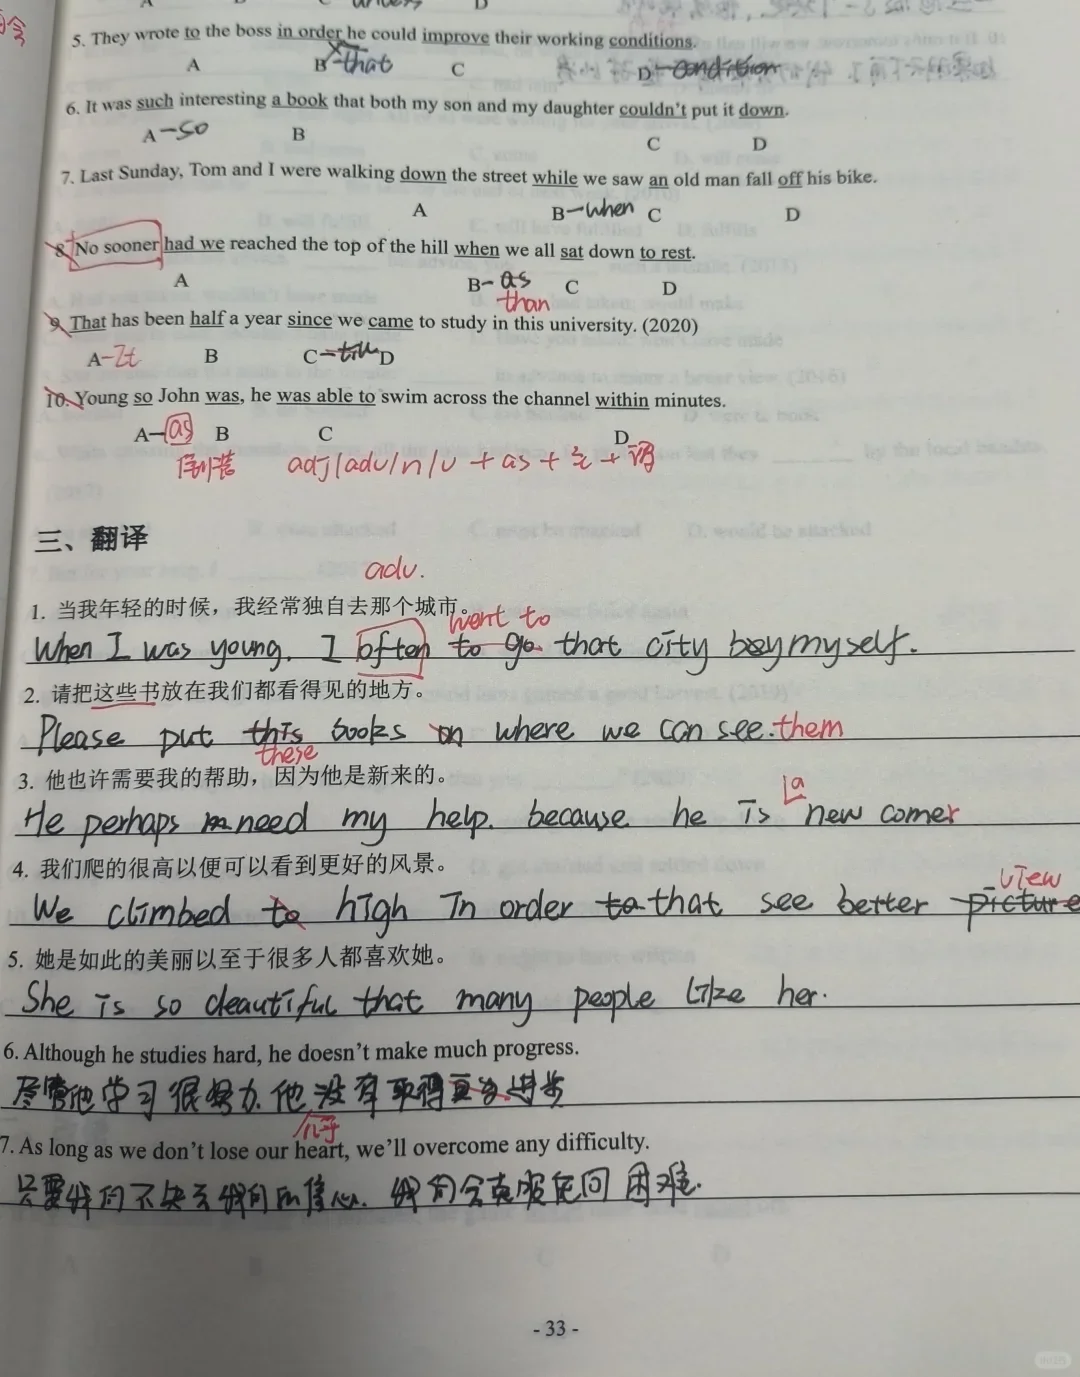 A
C
D
5. They wrote to the boss in order he could improve their working conditions.
A B-that C D-condition
6. It was such interesting a book that both my son and my daughter couldn't put it down.
A-so B C D
7. Last Sunday, Tom and I were walking down the street while we saw an old man fall off his bike.
A B-when C D
8. No sooner had we reached the top of the hill when we all sat down to rest.
A B-as C D
than
9. That has been half a year since we came to study in this university. (2020)
A-It B C-till D
10. Young so John was, he was able to swim across the channel within minutes.
A-as B C D
倒装 adj/adv/n/v + as + 主 + 谓
三、翻译
adv.
1. 当我年轻的时候，我经常独自去那个城市。
went to
When I was young. I often to go that city by myself.
2. 请把这些书放在我们都看得见的地方。
Please put this books on where we can see. them
these
3. 他也许需要我的帮助，因为他是新来的。
a
He perhaps need my help. because he is new comer
4. 我们爬的很高以便可以看到更好的风景。
view
We climbed to high In order to that see better picture
5. 她是如此的美丽以至于很多人都喜欢她。
She is so deautiful that many people like her.
6. Although he studies hard, he doesn't make much progress.
尽管他学习很努力. 他没有取得 进步
几乎
7. As long as we don't lose our heart, we'll overcome any difficulty.
只要我们不失去我们的信心. 我们会克服任何困难.
- 33 -